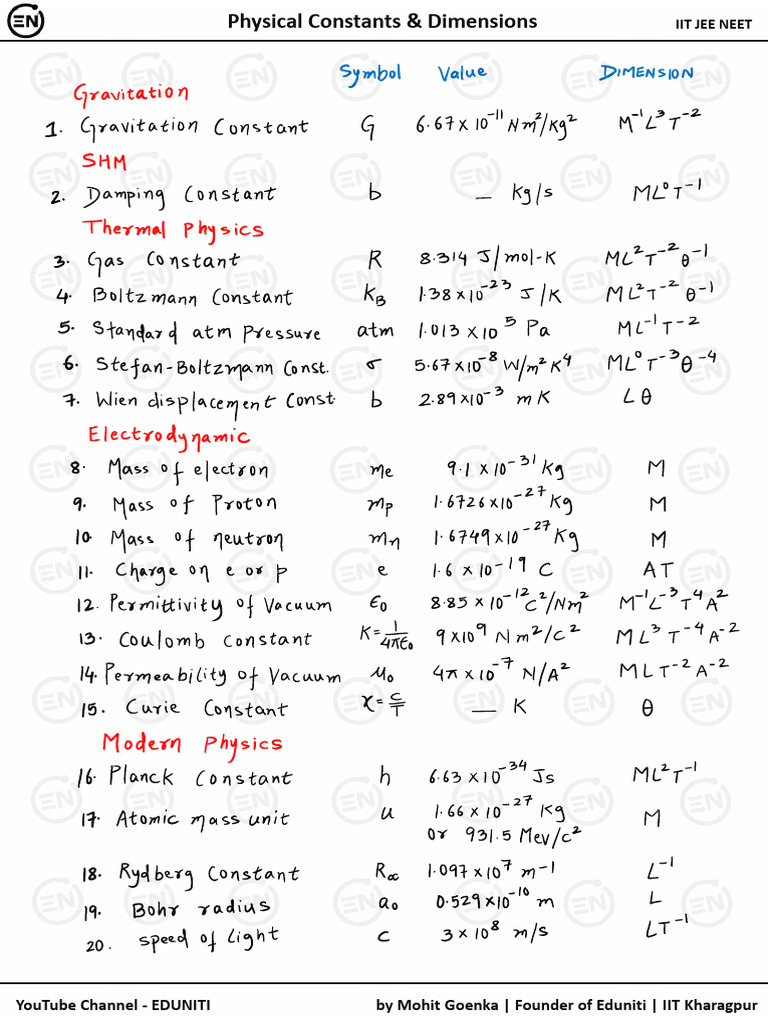 EN Physical Constants & Dimensions IIT JEE NEET
Symbol Value DIMENSION
Gravitation
1. Gravitation Constant G 6.67 × 10⁻¹¹ Nm²/Kg² M⁻¹L³T⁻²
SHM
2. Damping Constant b — Kg/s ML⁰T⁻¹
Thermal Physics
3. Gas Constant R 8.314 J/mol-K ML²T⁻²θ⁻¹
4. Boltzmann Constant K_B 1.38×10⁻²³ J/K ML²T⁻²θ⁻¹
5. Standard atm Pressure atm 1.013 × 10⁵ Pa ML⁻¹T⁻²
6. Stefan-Boltzmann Const. σ 5.67×10⁻⁸ W/m²K⁴ ML⁰T⁻³θ⁻⁴
7. Wien displacement Const. b 2.89×10⁻³ mK Lθ
Electrodynamic
8. Mass of electron me 9.1 × 10⁻³¹ Kg M
9. Mass of Proton mp 1.6726×10⁻²⁷ Kg M
10. Mass of neutron mn 1.6749×10⁻²⁷ Kg M
11. Charge on e or p e 1.6 × 10⁻¹⁹ C AT
12. Permittivity of Vacuum ε₀ 8.85 × 10⁻¹² C²/Nm² M⁻¹L⁻³T⁴A²
13. Coulomb constant K = 1/4πε₀ 9×10⁹ Nm²/C² ML³T⁻⁴A⁻²
14. Permeability of Vacuum μ₀ 4π × 10⁻⁷ N/A² MLT⁻²A⁻²
15. Curie Constant χ = C/T — K θ
Modern Physics
16. Planck Constant h 6.63 × 10⁻³⁴ Js ML²T⁻¹
17. Atomic mass unit u 1.66 × 10⁻²⁷ Kg M
or 931.5 Mev/c²
18. Rydberg Constant R∞ 1.097×10⁷ m⁻¹ L⁻¹
19. Bohr radius a₀ 0.529×10⁻¹⁰ m L
20. Speed of Light c 3 × 10⁸ m/s LT⁻¹
YouTube Channel - EDUNITI by Mohit Goenka | Founder of Eduniti | IIT Kharagpur